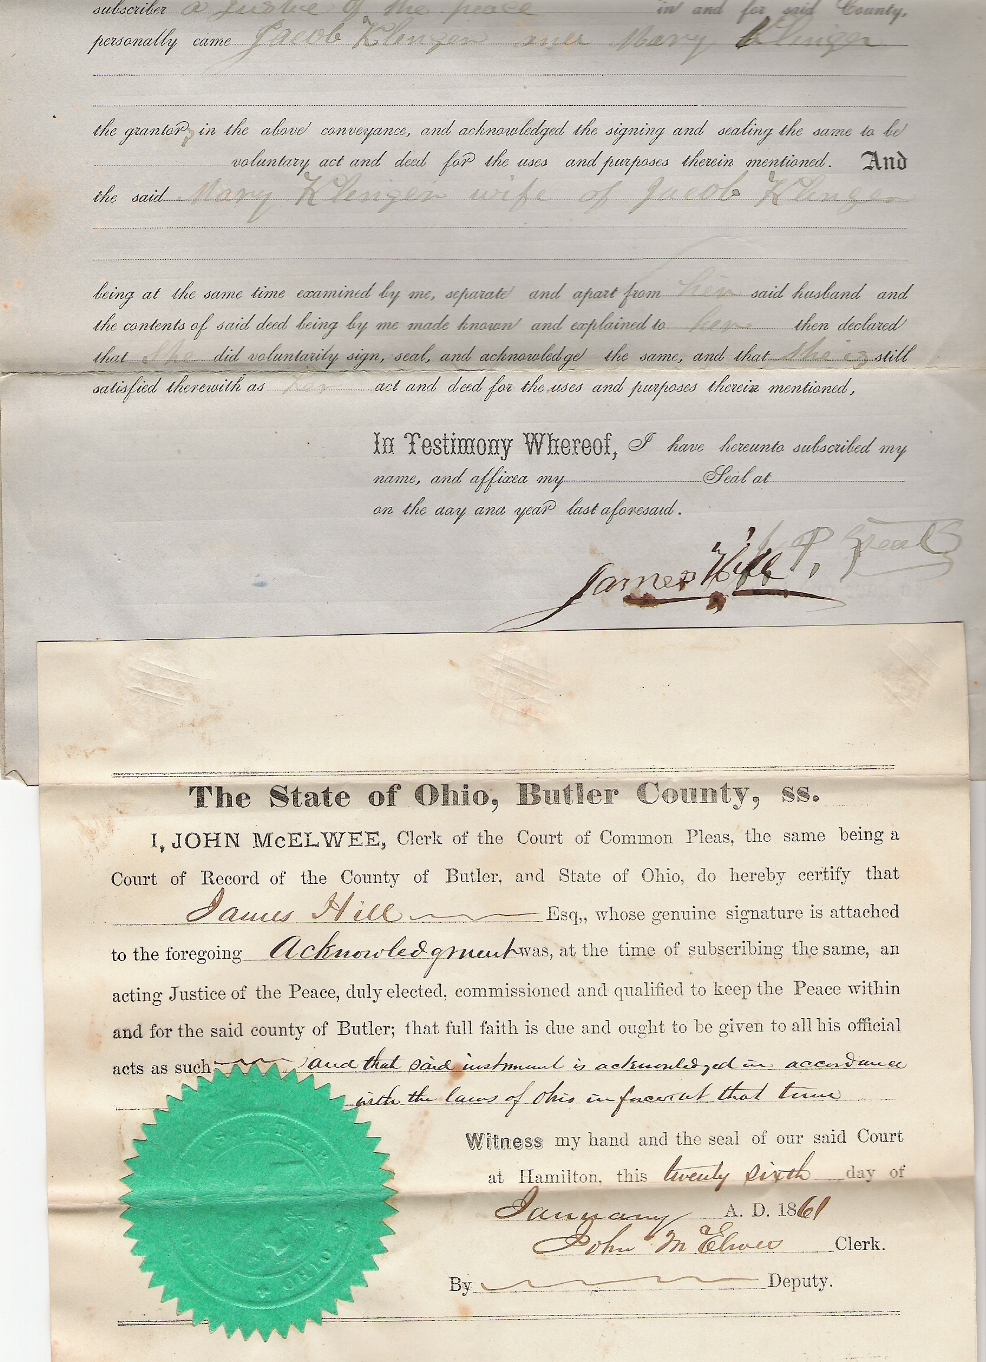 subscriber a Justice of the peace in and for said County,
personally came Jacob Klinger and Mary Klinger
the grantors in the above conveyance, and acknowledged the signing and sealing the same to be
voluntary act and deed for the uses and purposes therein mentioned. And
the said Mary Klinger wife of Jacob Klinger
being at the same time examined by me, separate and apart from her said husband and
the contents of said deed being by me made known and explained to her then declared
that she did voluntarily sign, seal, and acknowledge the same, and that she is still
satisfied therewith as her act and deed for the uses and purposes therein mentioned,
In Testimony Whereof, I have hereunto subscribed my
name, and affixed my Seal at
on the day and year last aforesaid.
James Hill J. P. Seal
The State of Ohio, Butler County, ss.
I, JOHN McELWEE, Clerk of the Court of Common Pleas, the same being a
Court of Record of the County of Butler, and State of Ohio, do hereby certify that
James Hill Esq., whose genuine signature is attached
to the foregoing Acknowledgment was, at the time of subscribing the same, an
acting Justice of the Peace, duly elected, commissioned and qualified to keep the Peace within
and for the said county of Butler; that full faith is due and ought to be given to all his official
acts as such and that said instrument is acknowledged in accordance
with the laws of Ohio in force at that time
Witness my hand and the seal of our said Court
at Hamilton, this twenty sixth day of
January A. D. 1861
John McElwee Clerk.
By Deputy.
OHIO